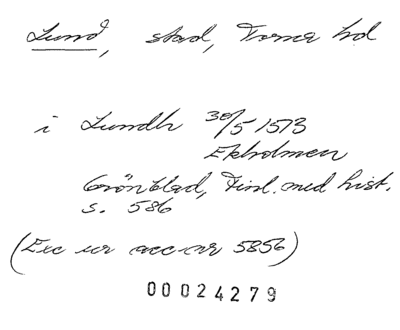 Lund, stad, Torna hd
i Lundh 30/5 1573
Ekholmen
Grönblad, Finl. med hist.
s. 586
(Exc ur acc nr 5856)
00024279